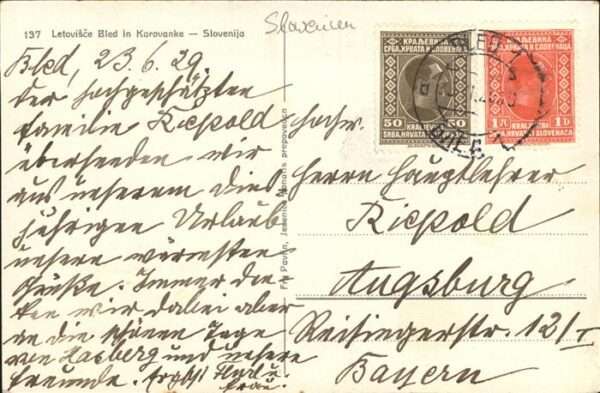 137 Letovišče Bled in Karavanke — Slovenija
Slovenien
Bled, 23.6.29.
Der hochgeschätzten
Familie Riepold
übersenden wir
aus unserem dies
jährigen Urlaub
unsere wärmsten
Grüße. Immer den
ken wir dabei aber
an die schönen Tage
von Hasberg und unsere
Freunde.
Frau.
Hochw.
Herrn Hauptlehrer
Riepold
Augsburg
Reisingerstr. 12/I
Bayern
Fr. Pavlin, Jesenice
prepovedan
КРАЉЕВИНА
СРБА, ХРВАТА И СЛОВЕНАЦА
50 50
KRALJEVINA
SRBA, HRVATA I SLOVENACA
КРАЉЕВИНА
СРБА, ХРВАТА И СЛОВЕНАЦА
1 Д 1 D
KRALJEVINA
SRBA, HRVATA I SLOVENACA
BLED 1